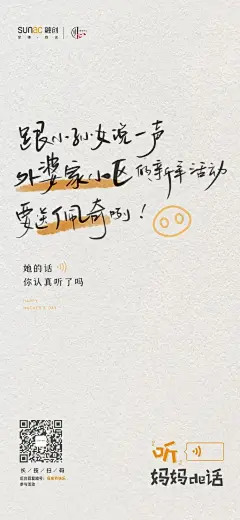 SUNAC 融创
跟小孙女说一声
外婆家小区的新年活动
要送佩奇咧！
她的话
你认真听了吗
HAPPY
MOTHER'S DAY
听
妈妈de话
长/按/扫/码